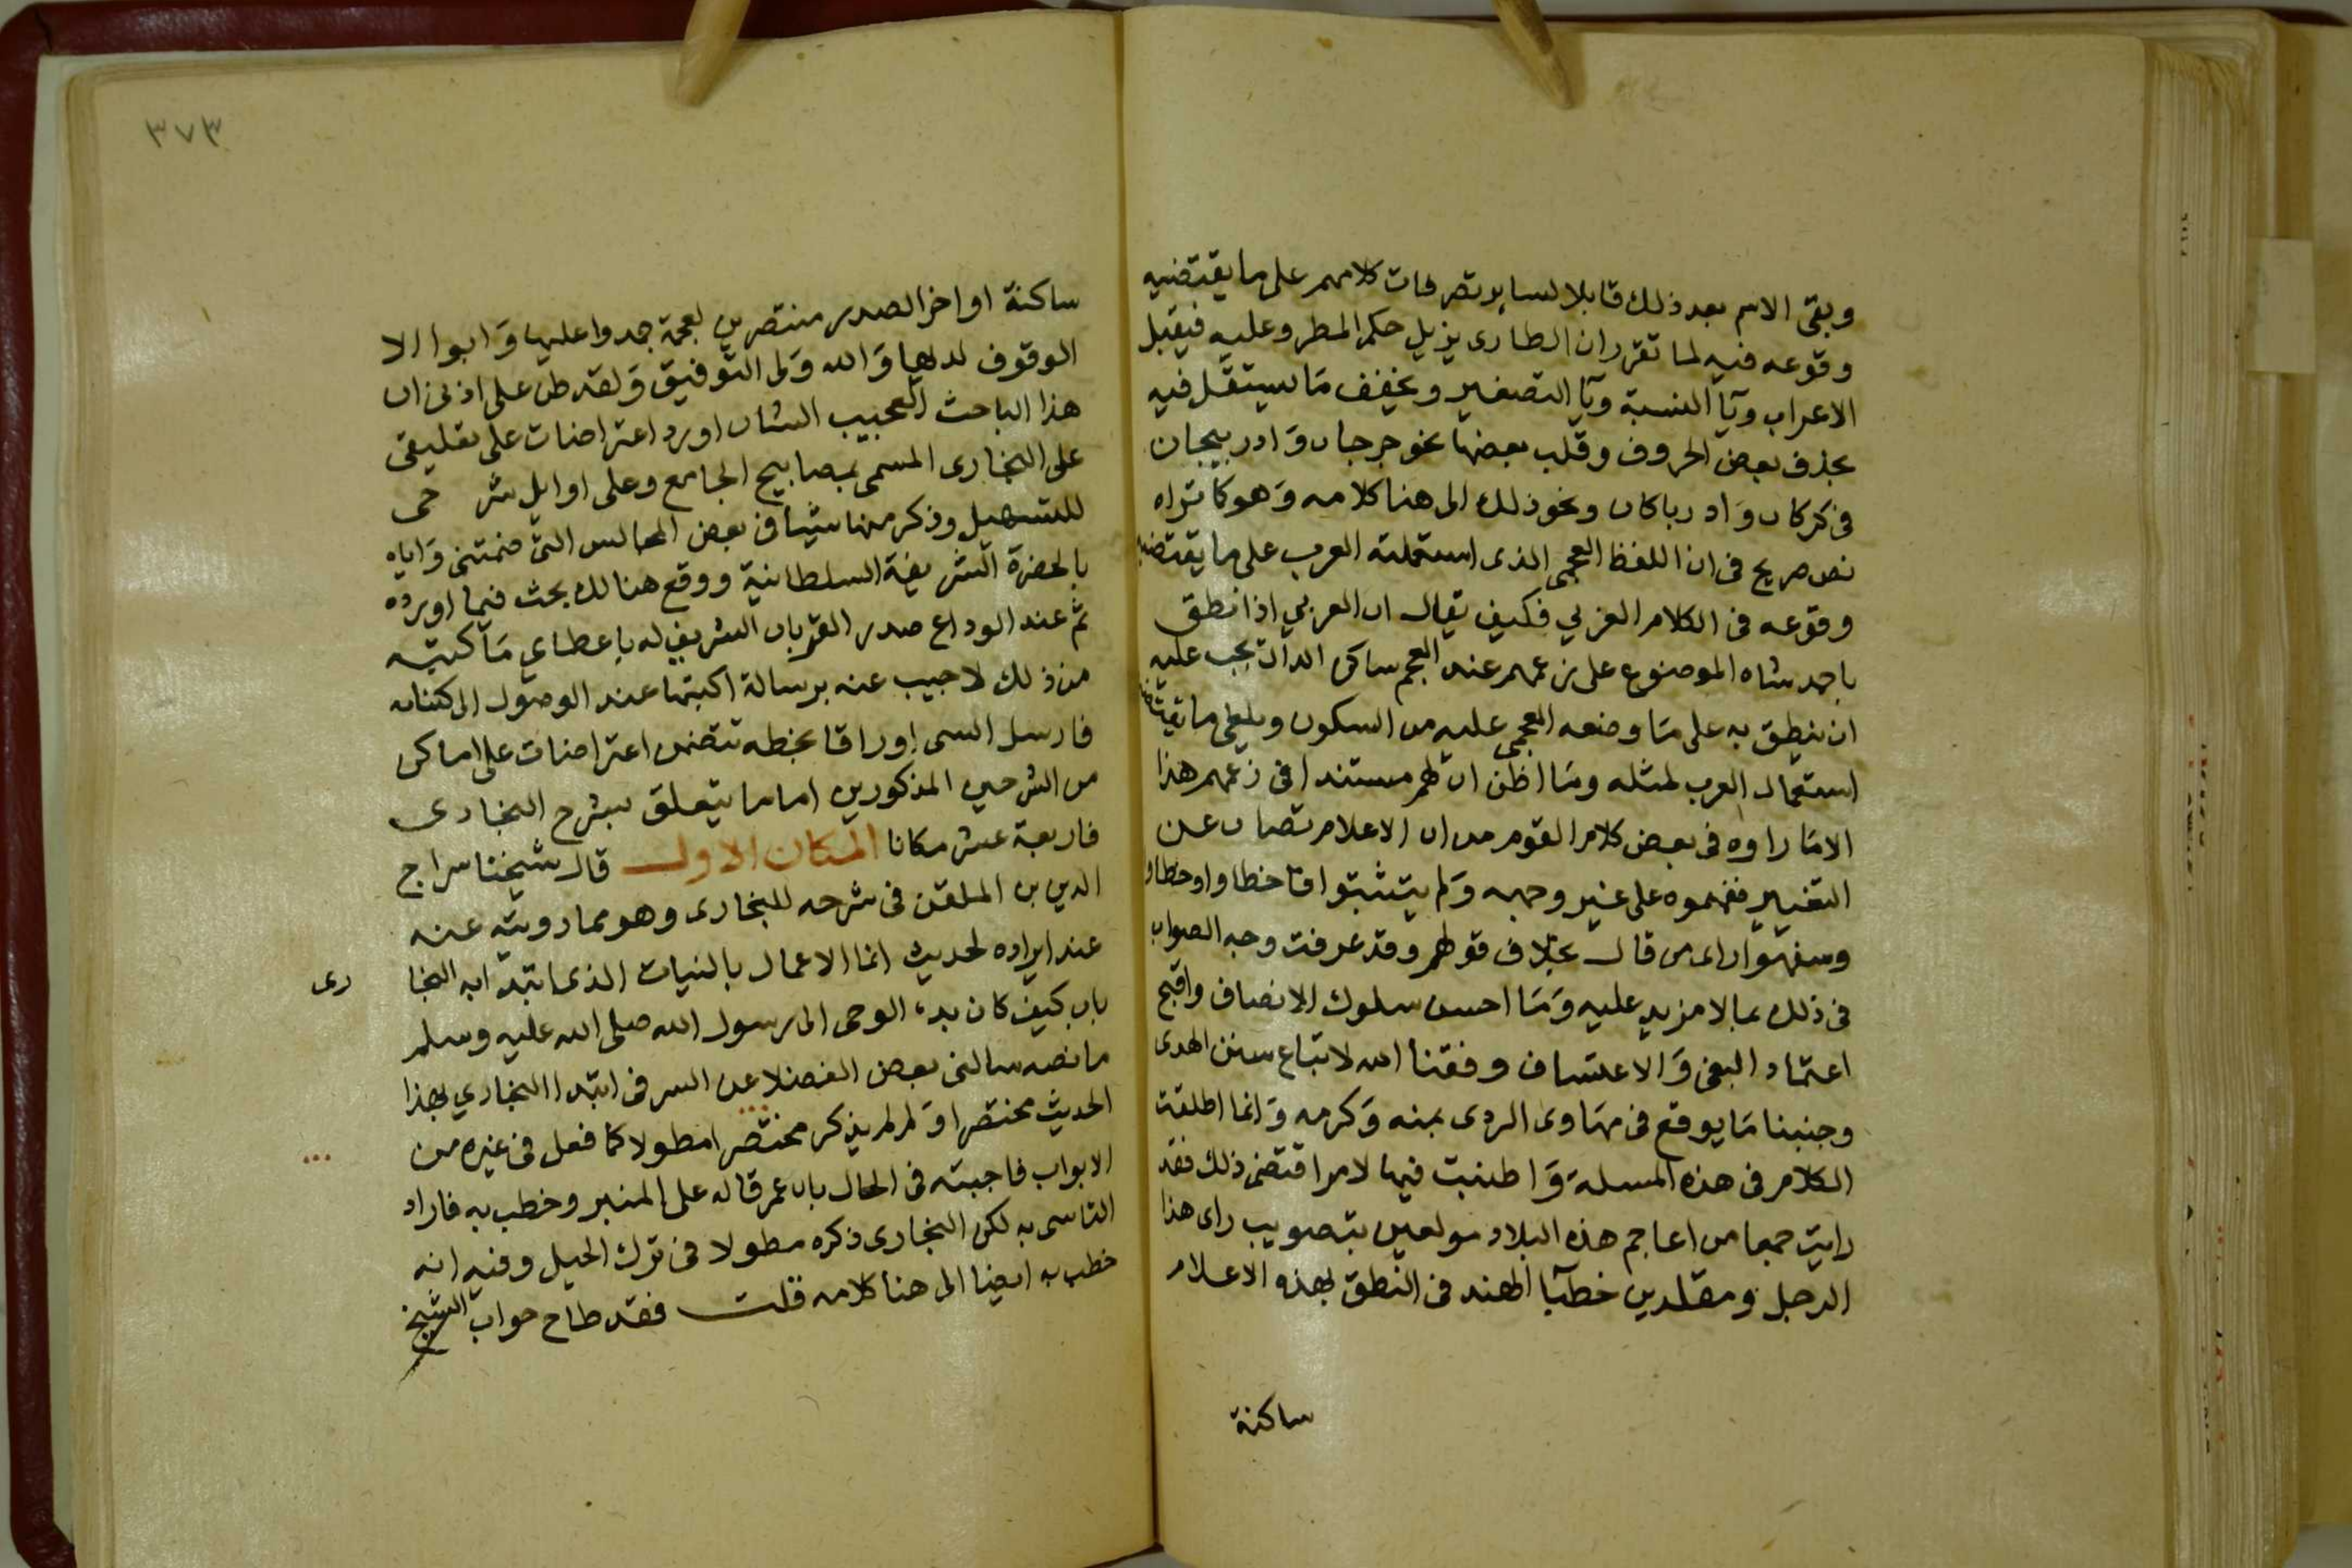 وبقى الاسم بعد ذلك قابلا لساير تصرفات كلامهم على ما يقتضيه
وقوعه فيه لما تقرر ان الطارى يزيل حكم المطر وعليه فيقبل
الاعراب ويآ النسبة ويآ التصغير ويخفف مَا يستثقل فيه
بحذف بعض الحروف وقلب بعضها نحو جرجان وَادربيجان
فى كركان وَادرباكان ونحو ذلك الى هنا كلامه وَهو كما تراه
نص صريح فى ان اللفظ العجمى الذى استعملته العرب على ما يقتضيه
وقوعه فى الكلام العربي فكيف يقال ان العربي اذا نطق
باحمد شاه الموضوع على زعمهم عند العجم ساكن الدال يجب عليه
ان ينطق به على مَا وضعه العجمى عليه من السكون ويلغى ما يقتضيه
استعمال العرب لمثله ومَا اظن ان لهم مستندا فى زعمهم هذا
الامَا راوه فى بعض كلام القوم من ان الاعلام تصان عن
التغيير ففهموه على غير وجهه وَلم يتثبتوا فاخطاوا وخطاوا
وسفهوا راى من قال بخلاف قولهم وقد عرفت وجه الصواب
فى ذلك بما لا مزيد عليه وَمَا احسن سلوك الانصاف واقبح
اعتماد البغى وَالاعتساف وفقنا الله لاتباع سنن الهدى
وجنبنا مَا يوقع فى مهاوى الردى بمنه وَكرمه وَانما اطلقت
الكلام فى هذه المسلة وَاطنبت فيها لامر اقتضى ذلك فقد
رايت جمعا من اعاجم هذه البلاد مولعين بتصويب راى هذا
الرجل ومقلدين خطبآ الهند فى النطق بهذه الاعلام
ساكنة
٣٧٣
ساكنة اواخر الصدر منتصرين لعجمة جمدوا عليها وَابوا الا
الوقوف لديها وَالله وَلى التوفيق وَلقد طن على اذنى ان
هذا الباحث العجيب الشان اورد اعتراضات على تعليقى
على البخارى المسمى بمصابيح الجامع وعلى اوايل شرحى
للتسهيل وذكر منها شيأ فى بعض المجالس التى ضمتنى وَاياه
بالحضرة الشريفة السلطانية ووقع هنالك بحث فيما اورده
ثم عند الوداع صدر الفرمان الشريف له باعطاى مَا كتبته
من ذلك لاجيب عنه برسالة اكتبها عند الوصول الى كنبايه
فارسل الىّ اوراقا بخطه تتضمن اعتراضات على اماكن
من الشرحين المذكورين اما ما يتعلق بشرح البخارى
فاربعة عشر مكانا المكان الاول قال شيخنا سراج
الدين بن الملقن فى شرحه للبخارى وهو مما رويته عنه
عند ايراده لحديث انما الاعمال بالنيات الذى ابتدا به البخارى
باب كيف كان بدء الوحى الى رسول الله صلى الله عليه وسلم
ما نصه سالنى بعض الفضلا عن السر فى ابتدا البخاري بهذا
الحديث مختصرا وَلم لم يذكر مختصرا مطولا كما فعل فى غيره من
الابواب فاجبته فى الحال بان عمر قاله على المنبر وخطب به فاراد
التاسى به لكن البخارى ذكره مطولا فى ترك الحيل وفيه انه
خطب به ايضا الى هنا كلامه قلت فقد طاح جواب الشيخ